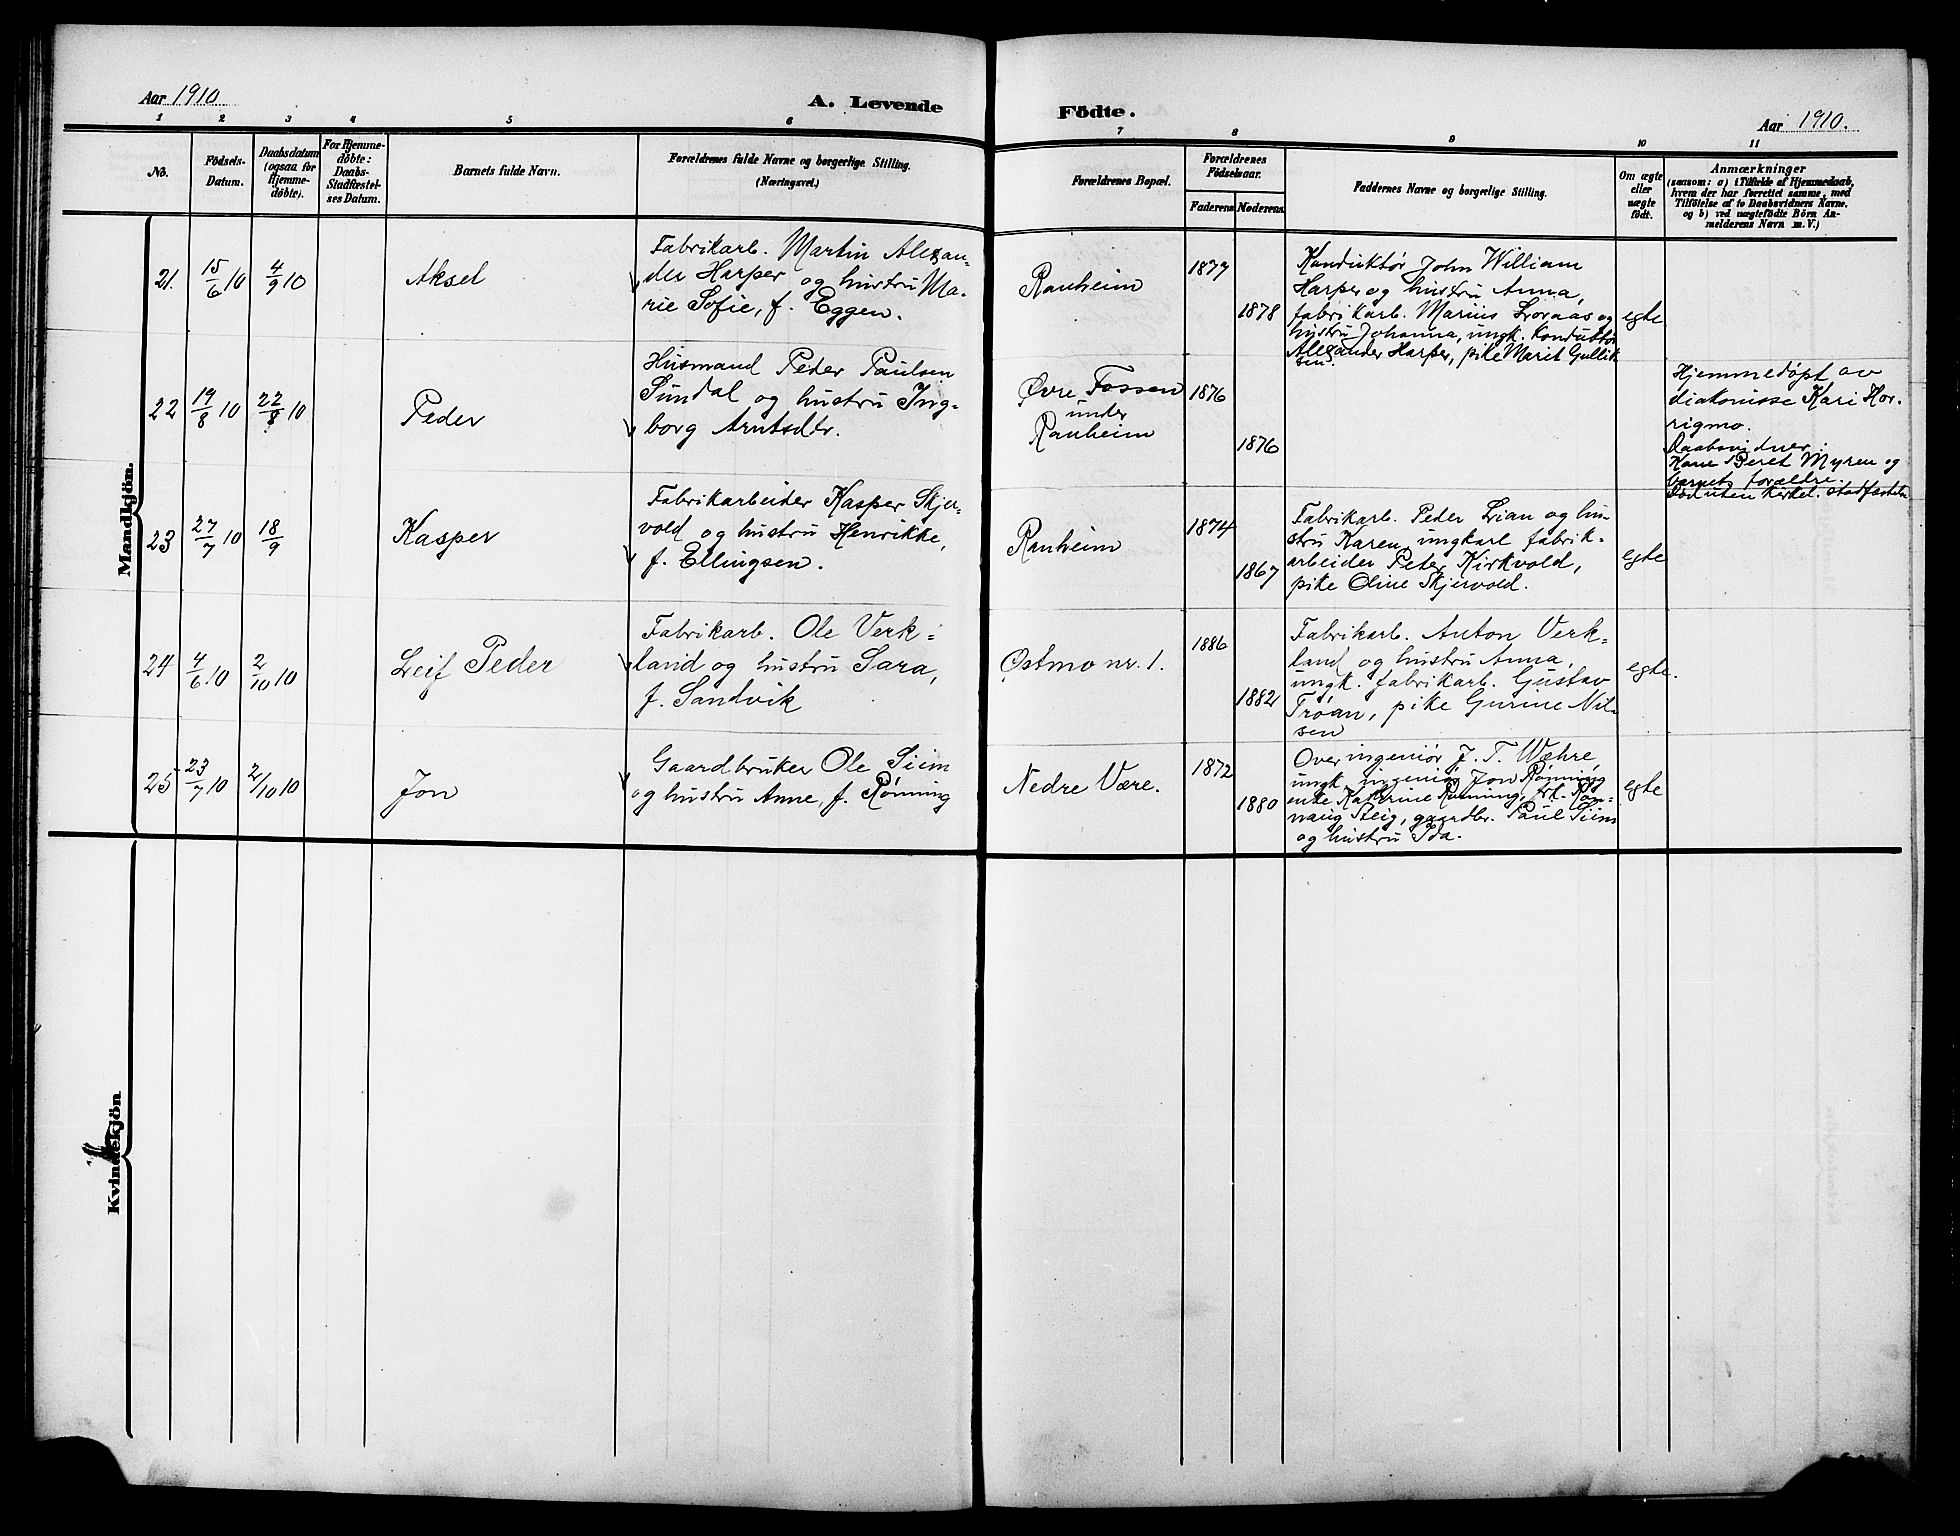 Aar 1910
A. Levende
Födte.
Aar 1910.
1 2 3 4 5 6 7 8 9 10 11
No.
Födsels-
Datum.
Daabsdatum
(ogsaa for
Hjemme-
döbte).
For Hjemme-
döbte:
Daabs-
Stadfæstel-
ses Datum.
Barnets fulde Navn.
Forældrenes fulde Navne og borgerlige Stilling.
(Næringsvei.)
Forældrenes Bopæl.
Forældrenes
Födselsaar.
Faderens
Moderens
Faddernes Navne og borgerlige Stilling.
Om ægte
eller
uægte
födt.
Anmærkninger
(saasom: a) i Tilfælde af Hjemmedaab,
hvem der har forrettet samme, med
Tilföielse af to Daabsvidners Navne.
og b) ved uægtefödte Börn An-
melderens Navn m.V.)
Mandkjön.
21.
15/6 10
4/9 10
Aksel
Fabrikarb. Martin Alexan-
der Harper og hustru Ma-
rie Sofie, f. Eggen.
Ranheim
1877
1878
Konduktør John William
Harper og hustru Anna,
fabrikarb. Marius Loraas og
hustru Johanna, ungk. Konduktør
Alexander Harper, pike Marit Gullik
sen.
egte
22
19/8 10
22/8 10
Peder
Husmand Peder Paulsen
Sundal og hustru Ing-
borg Arntsdtr.
Øvre Fossen
under
Ranheim
1876
1876
Hjemmedøpt av
diakonisse Kari Hor-
rigmo.
Daabsvidner:
Kone Beret Myren og
barnets forældre.
Død uten kirkel. stadfæstelse
23
27/7 10
18/9
Kasper
Fabrikarbeider Kasper Skjer-
vold og hustru Henrikke,
f. Ellingsen.
Ranheim
1874
1867
Fabrikarb. Peder Lian og hu-
stru Karen, ungkarl fabrik-
arbeider Peter Kirkvold,
pike Oline Skjervold.
egte
24
4/6 10
2/10 10
Leif Peder
Fabrikarb. Ole Verk-
land og hustru Sara,
f. Sandvik
Østmo nr. 1.
1886
1882
Fabrikarb. Anton Verk-
land og hustru Anna,
ungk. fabrikarb. Gustav
Trøan, pike Gurine Nil-
sen
egte.
25
23/7 10
2/10 10
Jon
Gaardbruker Ole Siem
og hustru Anne, f. Rønning
Nedre Være.
1872
1880
Overingeniør J. T. Wæhre,
ungk. ingeniør Jon Rønning
enke Kathrine Rønning, frk. Røn-
naug Steig, gaardbr. Paul Siem
og hustru Ida.
egte
Kvindekjön